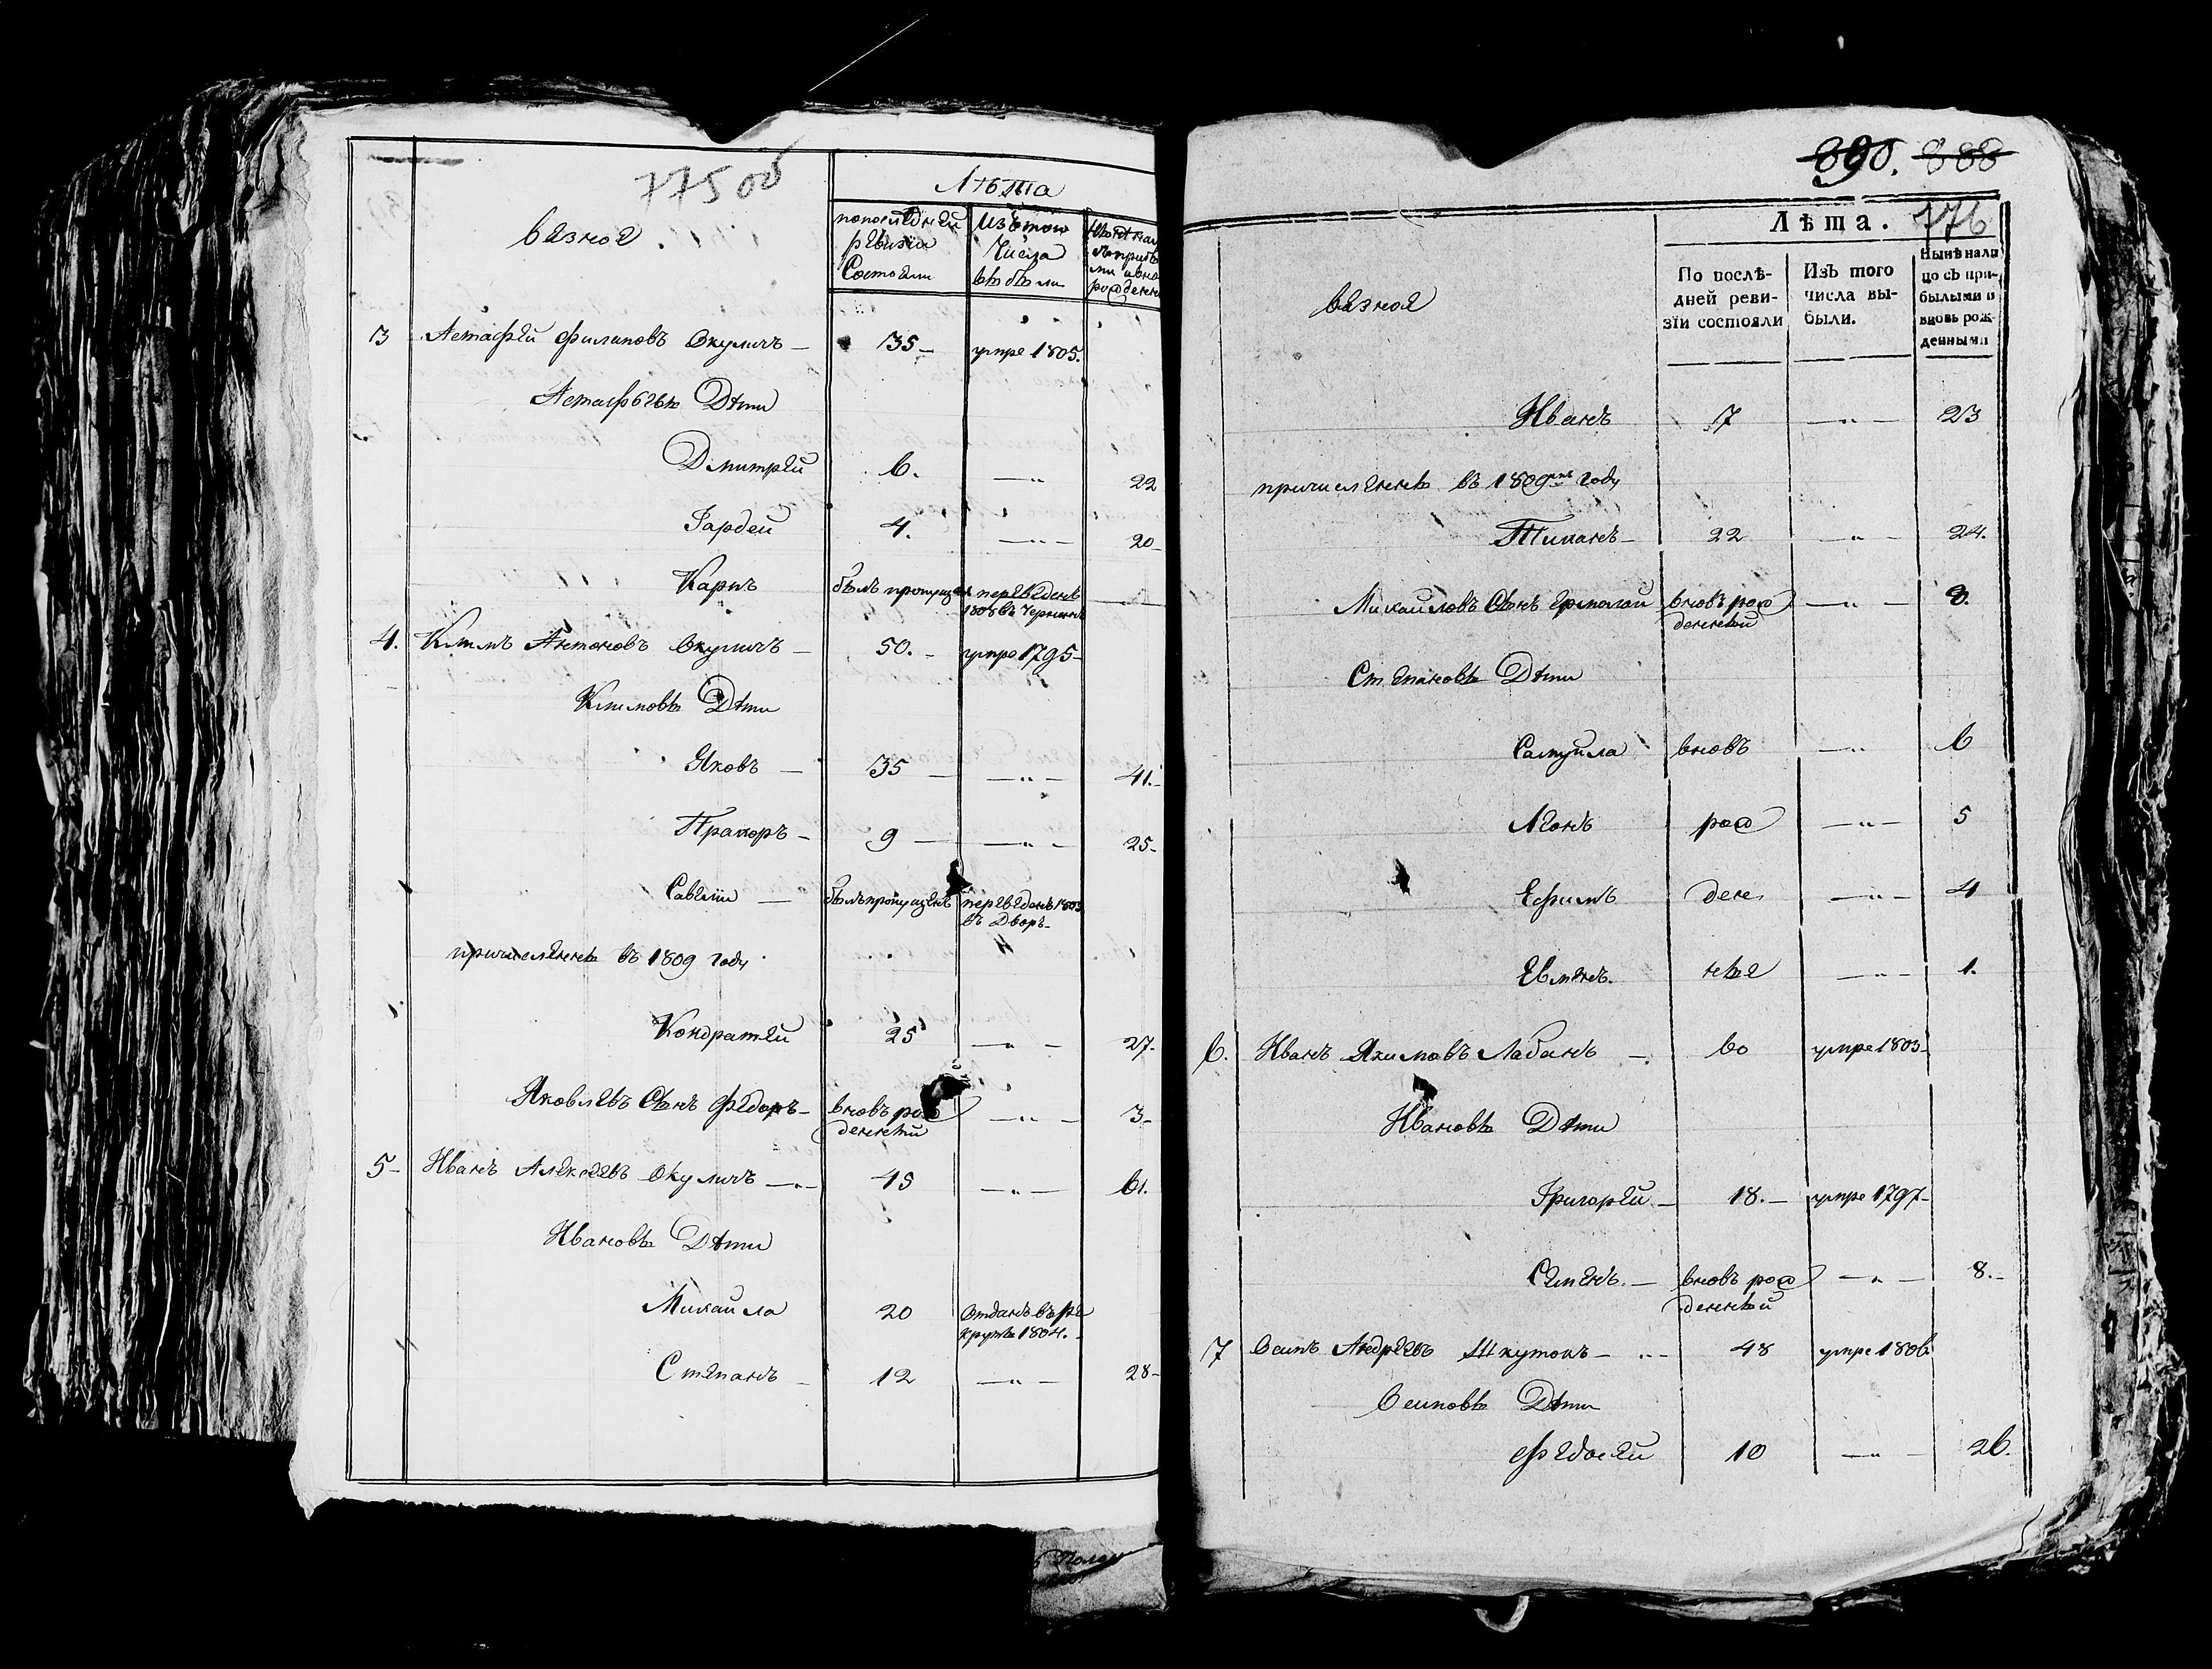 775 об
Лѣта
вязноя.
по последней ревизіи Состояли
Изъ того Числа выбыли
рожденны
3 Астафей Филаповъ Окуличъ — 35 — умре 1805.
Астафьевы Дѣти
Дмитрей 6. —"— 22
Гордей 4. —"— 20
Карпъ былъ пропущен переведенъ
4. Климъ Антоновъ Окуличъ — 50. — умре 1795
Климовы Дѣти
Яковъ — 35 — —"— 41.
Пракопъ — 9 — —"— 25
Савелій — былъ пропущенъ переведенъ 1803
въ Дворъ
причисленны въ 1809 году
Кондратей 25 —"— 27.
Яковлевъ Сынъ Федоръ — вновь рож —"— 3
денный
5 Иванъ Алексеевъ Окуличъ —"— 45 —"— 61.
Ивановы Дѣти
Михайла 20 отданъ въ ре
круты 1804.
Степанъ 12 —"— 28
890. 888
Лѣта. 776
вязноя
По послѣдней ревизіи состояли
Изъ того числа выбыли.
Нынѣ налицо съ прибылыми и вновь рожденными
Иванъ 7 —"— 23
причисленны въ 1809мъ году
Типанъ 22 —"— 24.
Михайловъ Сынъ Ермолай вновь рож —"— 8.
денный
Степановы Дѣти
Самуйла вновь —"— 6
Леонъ рож —"— 5
Ефимъ ден —"— 4
Евменъ. ныя —"— 1.
6. Иванъ Якимовъ Лабанъ — 60 умре 1803
Ивановы Дѣти
Григорей — 18. — умре 1797
Семенъ. — вновь рож —"— 8.
денный
7 Осипъ Андреевъ Шкутокъ — 48 умре 1806
Осиповы Дѣти
Федосей 10 —"— 26.